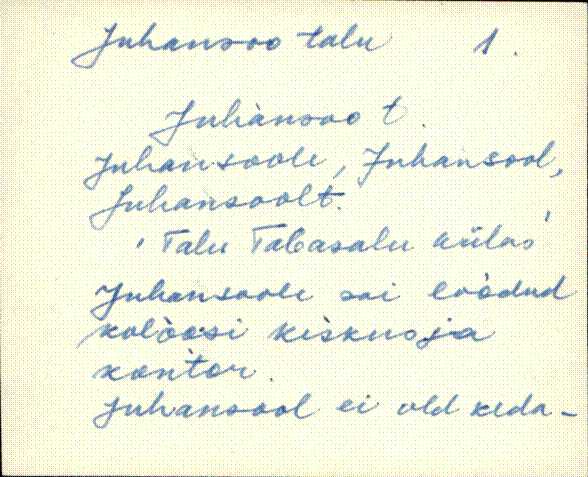 Juhansoo talu 1.
Juhànsoo t.
Juhansoole, Juhansool,
Juhansoolt.
' Talu Tabasalu külas'
Juhansoole sai loòdud
kolòosi kèskus ja
kontòr.
Juhansool ei old keda-